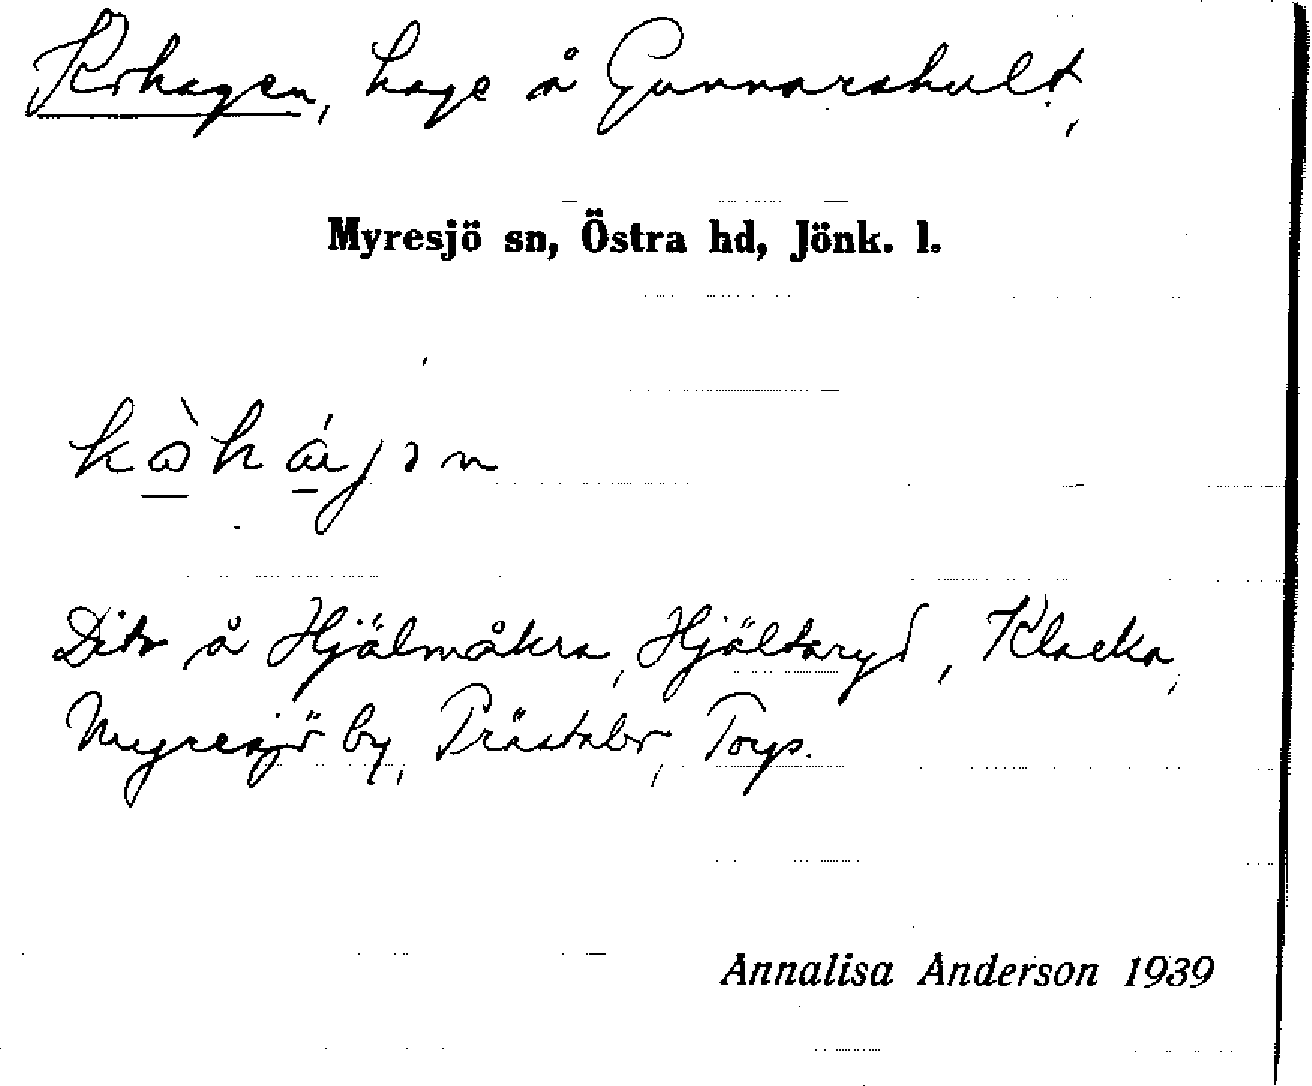 Kohagen, hage å Gunnarshult,
Myresjö sn, Östra hd, Jönk. l.
Dito å Hjälmåkra, Hjältaryd, Klacka,
Myresjö by, Prästabo, Torp.
Annalisa Anderson 1939